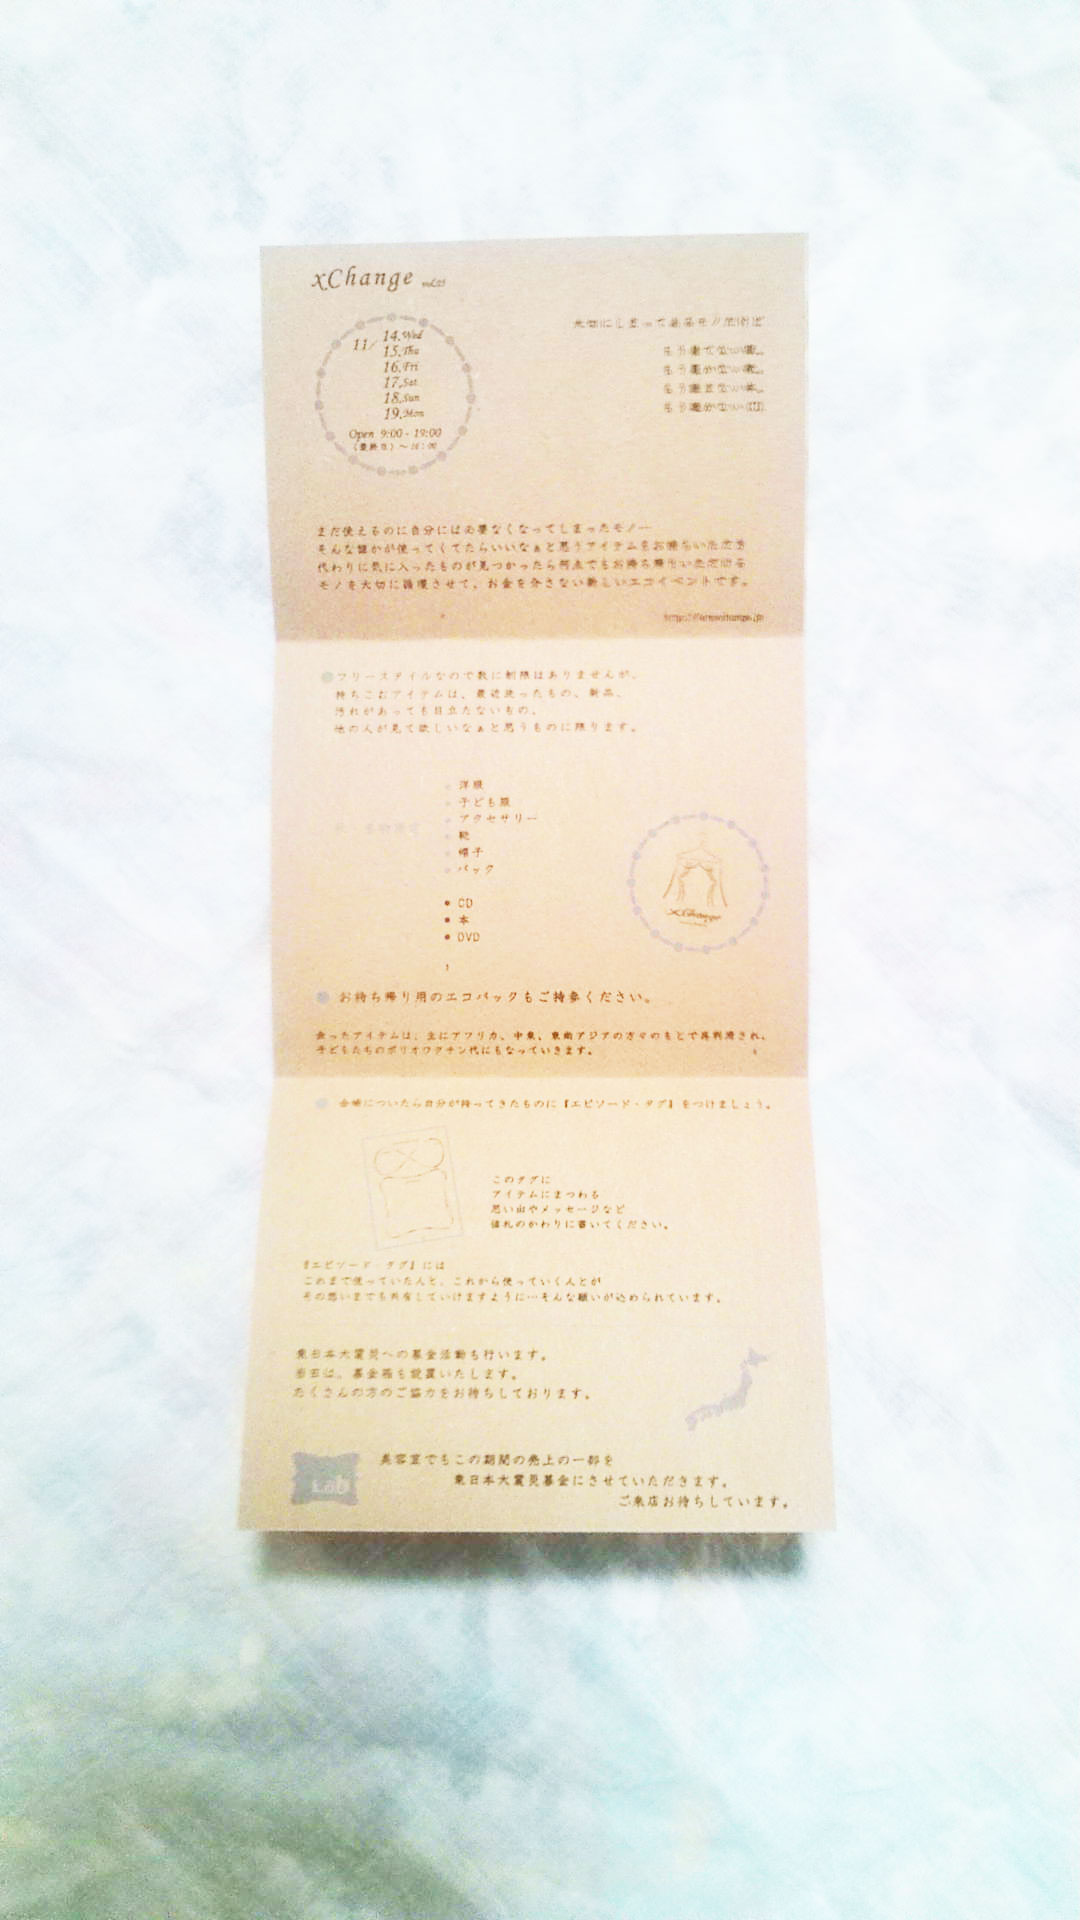 xChange
11/
14.Wed
15.Thu
16.Fri
17.Sat
18.Sun
19.Mon
Open 9:00 - 19:00
(最終日)～
まだ使えるのに自分には必要なくなってしまったモノ―
そんな誰かが使ってくてたらいいなぁと思うアイテムをお持ちいただき
代わりに気に入ったものが見つかったら何点でもお持ち帰りいただける
モノを大切に循環させて、お金を介さない新しいエコイベントです。
フリースタイルなので数に制限はありませんが、
持ちこむアイテムは、最近洗ったもの、新品、
汚れがあっても目立たないもの、
他の人が見て欲しいなぁと思うものに限ります。
洋服
子ども服
アクセサリー
靴
帽子
バック
CD
本
DVD
xChange
お持ち帰り用のエコバックもご持参ください。
余ったアイテムは、主にアフリカ、中東、東南アジアの方々のもとで再利用され、
子どもたちのポリオワクチン代にもなっていきます。
会場についたら自分が持ってきたものに『エピソード・タグ』をつけましょう。
このタグに
アイテムにまつわる
思い出やメッセージなど
値札のかわりに書いてください。
『エピソード・タグ』には
これまで使っていた人と、これから使っていく人とが
その想いまでも共有していけますように…そんな願いが込められています。
東日本大震災への募金活動も行います。
当日は、募金箱も設置いたします。
たくさんの方のご協力をお待ちしております。
Lab
美容室でもこの期間の売上の一部を
東日本大震災募金にさせていただきます。
ご来店お待ちしています。